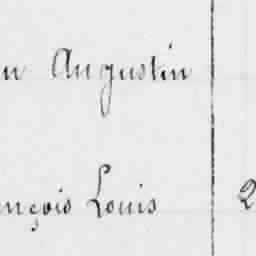 n Augustin
nçois Louis 2